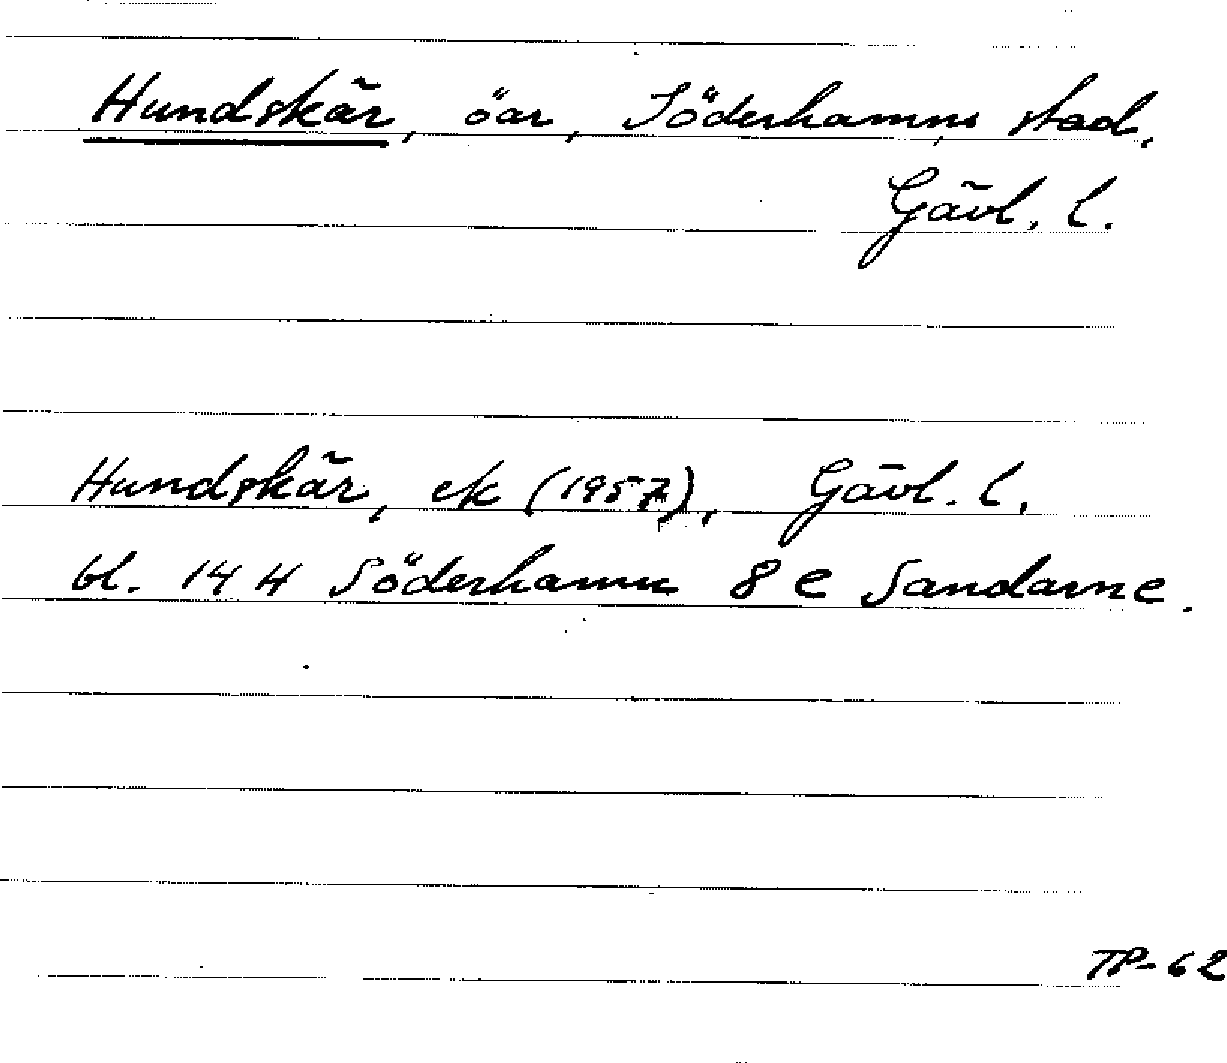 Hundskär, öar, Söderhamns stad.
Gävl. l.
Hundskär, ek (1957), Gävl. l.
bl. 14 H Söderhamn 8 e Sandarne.
TP-62